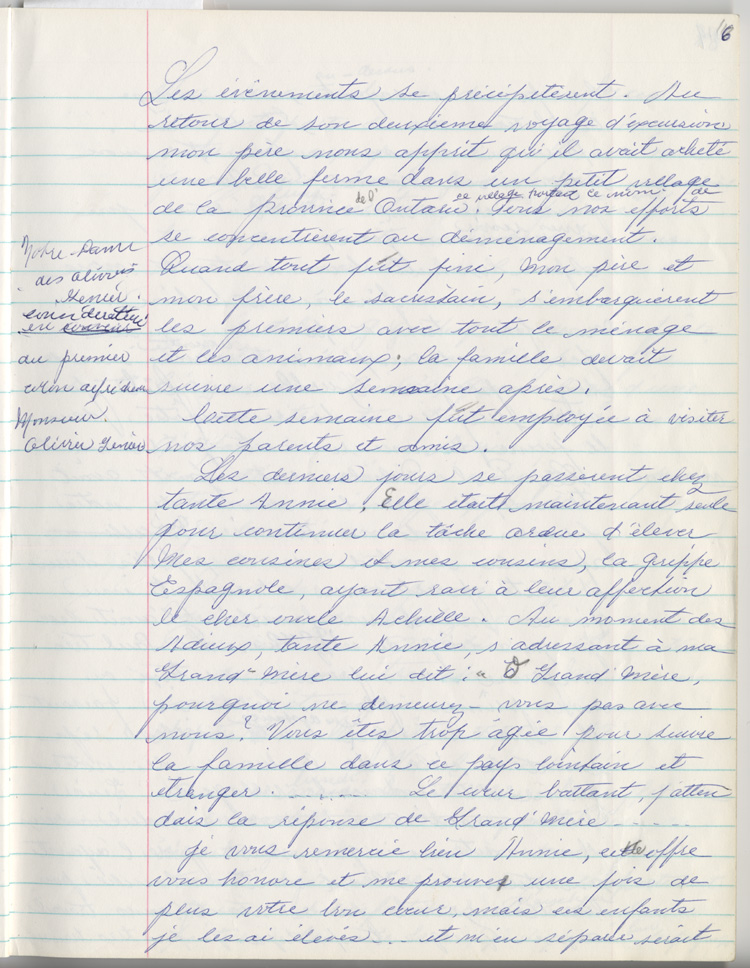 6
Les évènements se précipitèrent. Au
retour de son deuxième voyage d'excursion
mon père nous apprit qu'il avait acheté
une belle ferme dans un petit village
de la province de l'Ontario. ce village portait ce nom de
Tous nos efforts
se concentrèrent au déménagement.
Notre-Dame
des Oliviers
Genier.
en
au premier
colon
Monsieur
Olivier Genier
Quand tout fut fini, mon père et
mon frère, le sacristain, s'embarquèrent
les premiers avec tout le ménage
et les animaux; la famille devait
suivre une semaine après.
Cette semaine fut employée à visiter
nos parents et amis.
Les derniers jours se passèrent chez
tante Annie. Elle était maintenant seule
pour continuer la tâche ardue d'élever
Mes cousines et mes cousins, la grippe
Espagnole, ayant ravi à leur affection
le cher oncle Achille. Au moment des
Adieux, tante Annie, s'adressant à ma
Grand-Mère lui dit: "Ô Grand'Mère,
pourquoi ne demeurez-vous pas avec
nous? Vous êtes trop âgée pour suivre
la famille dans ce pays lointain et
étranger. ....... Le cœur battant, j'atten
dais la réponse de Grand'Mère ......
Je vous remercie bien Annie, cette offre
vous honore et me prouve une fois de
plus votre bon cœur, mais ces enfants
je les ai élevés... et m'en séparer serait